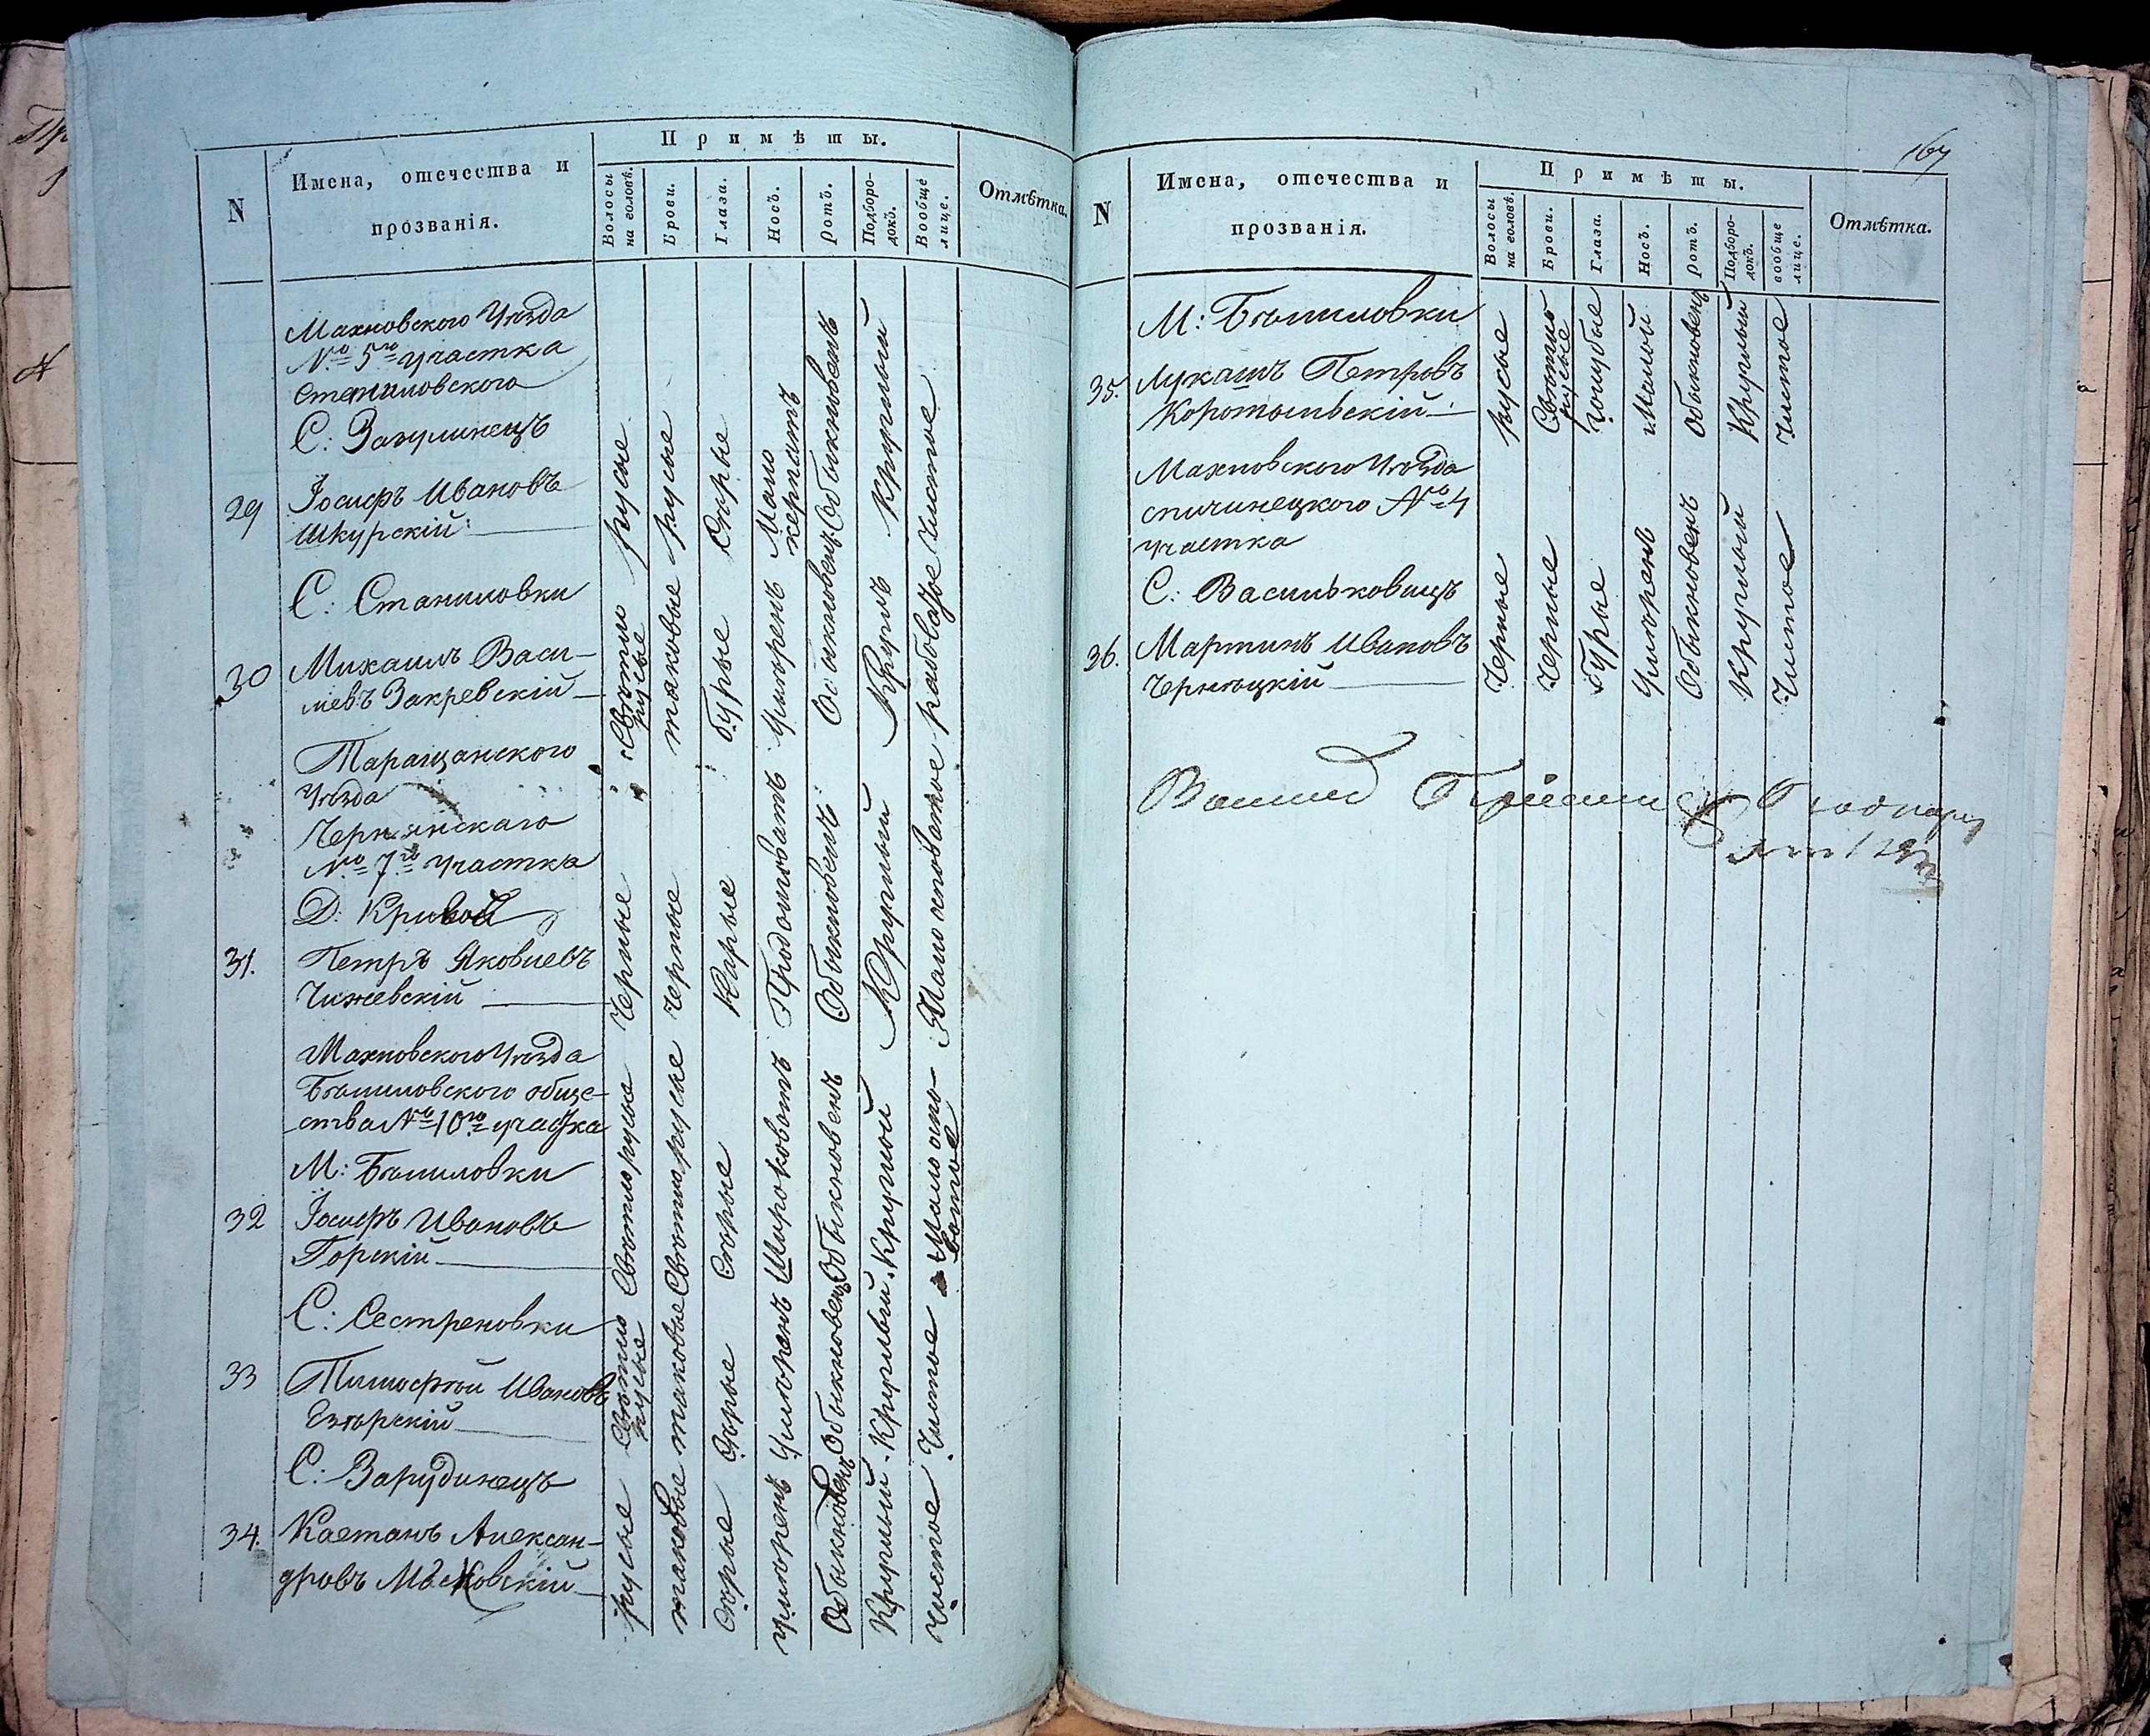 Примѣты.
N
Имена, отечества и
прозванія.
Волосы
на головѣ.
Брови.
Глаза.
Носъ.
Ротъ.
Подборо-
докъ.
Вообще
лице.
Отмѣтка.
Махновскаго Уѣзда
№ 5го участка
Станиловского
С: Зозулинецъ
29 Іосифъ Ивановъ
Шкурскій
русые
русые
Сѣрые
Мало
керпатъ
Обыкновенъ
Круглый
Чистое
С: Станиловки
30 Михаилъ Васи-
левъ Закревскій
Свѣтло
русые
таковые
бурые
Умѣренъ
Обыкновенъ
Круглъ
рабоватое
Таращанского
Уѣзда
№ 7го участка
Д: Кривой
31. Петръ Яковлевъ
Чижевскій
Черные
Черные
Карые
Продолговатъ
Обыкновенъ
Круглый
Махновского Уѣзда
Бѣлиловского обще-
ства № 10го участка
М: Бѣлиловки
32 Іосифъ Ивановъ
Горскій
Свѣтлорусые
Свѣтлорусые
Сѣрые
Широковатъ
Обыкновенъ
Круглый
Мало оспо-
ватое
С: Сестреновки
33 Тимофей Ивановъ
Езѣрскій
Свѣтло
русые
таковые
Сѣрые
Умѣренъ
Обыкновенъ
Круглый
Чистое
С: Зарудинецъ
34. Каетанъ Алексан-
дровъ
русые
таковые
Сѣрые
умѣренъ
Обыкновенъ
Круглый
Чистое
167
Примѣты.
N
Имена, отечества и
прозванія.
Волосы
на головѣ.
Брови.
Глаза.
Носъ.
Ротъ.
Подборо-
докъ.
вообще
лице.
Отмѣтка.
М: Бѣлиловки
35. Лукашъ Петровъ
Коротельскій
русые
Свѣтло
русые
Голубые
Малой
Обыкновенъ
Круглый
Чистое
Махновского Уѣзда
спичинецкого № 4
участка
С: Васильковицъ
36. Мартинъ Ивановъ
Чернѣцкій
Черные
Черные
бурые
Умѣренъ
Обыкновенъ
Круглый
Чистое